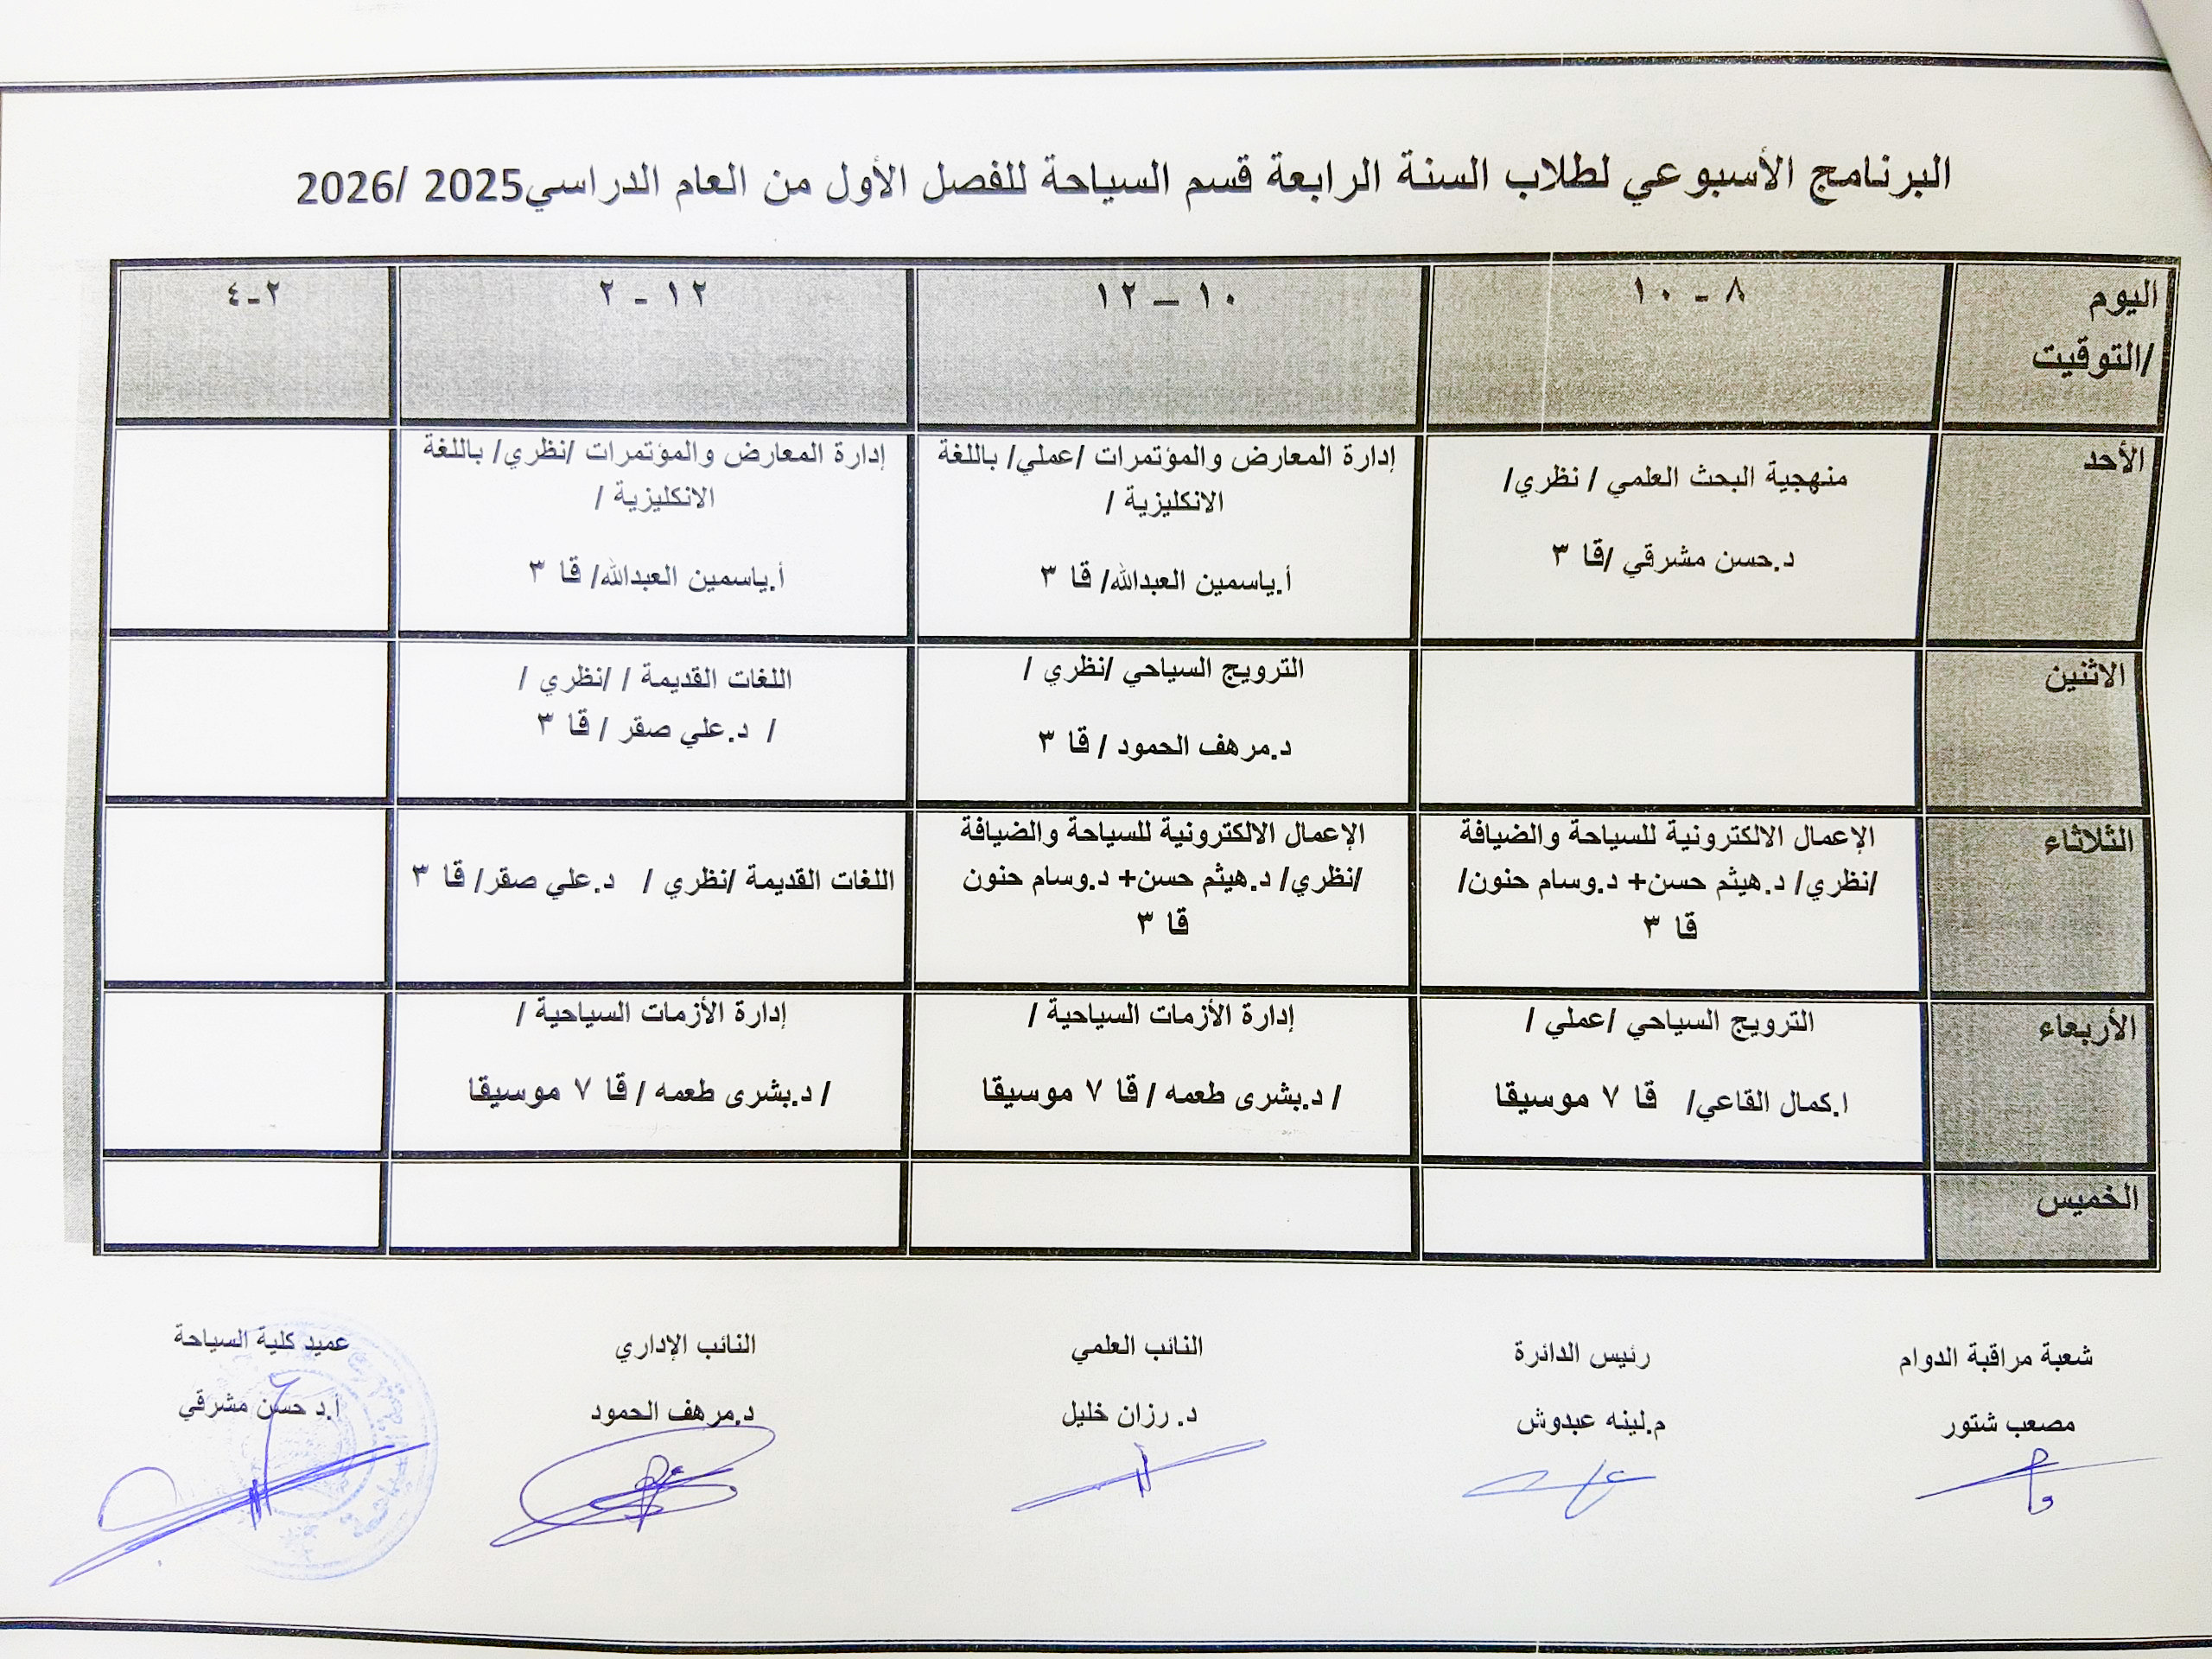 البرنامج الأسبوعي لطلاب السنة الرابعة قسم السياحة للفصل الأول من العام الدراسي2025 /2026
اليوم
/التوقيت
٨ - ١٠
١٠ – ١٢
١٢ - ٢
٢-٤
الأحد
منهجية البحث العلمي / نظري/
د.حسن مشرقي /قا ٣
إدارة المعارض والمؤتمرات /عملي/ باللغة
الانكليزية /
أ.ياسمين العبدالله/ قا ٣
إدارة المعارض والمؤتمرات /نظري/ باللغة
الانكليزية /
أ.ياسمين العبدالله/ قا ٣
الاثنين
الترويج السياحي /نظري /
د.مرهف الحمود / قا ٣
اللغات القديمة / /نظري /
/ د.علي صقر / قا ٣
الثلاثاء
الإعمال الالكترونية للسياحة والضيافة
/نظري/ د.هيثم حسن+ د.وسام حنون/
قا ٣
الإعمال الالكترونية للسياحة والضيافة
/نظري/ د.هيثم حسن+ د.وسام حنون
قا ٣
اللغات القديمة /نظري / د.علي صقر/ قا ٣
الأربعاء
الترويج السياحي /عملي /
ا.كمال القاعي/ قا ٧ موسيقا
إدارة الأزمات السياحية /
/ د.بشرى طعمه / قا ٧ موسيقا
إدارة الأزمات السياحية /
/ د.بشرى طعمه / قا ٧ موسيقا
الخميس
شعبة مراقبة الدوام
مصعب شتور
رئيس الدائرة
م.لينه عبدوش
النائب العلمي
د. رزان خليل
النائب الإداري
د.مرهف الحمود
عميد كلية السياحة
أ.د حسن مشرقي